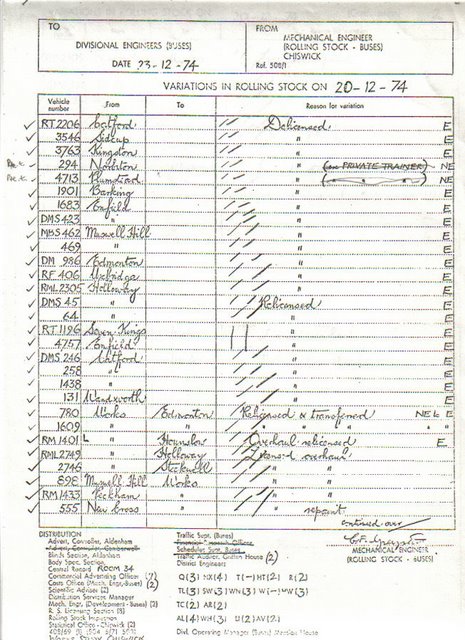 TO
DIVISIONAL ENGINEERS (BUSES)
DATE 23-12-74
FROM
MECHANICAL ENGINEER
(ROLLING STOCK - BUSES)
CHISWICK
Ref. 508/1
VARIATIONS IN ROLLING STOCK ON 20-12-74
Vehicle number From To Reason for variation
RT2206 Catford Delicensed E
3546 Sidcup " E
3763 Kingston " E
294 Norbiton " (as PRIVATE TRAINER) NE
4713 Plumstead " ( " " ) NE
1901 Barking " E
1683 Enfield " E
DMS 423 " " E
MBS 462 Muswell Hill " E
469 " " E
DM 986 Edmonton " E
RF 406 Uxbridge " E
RML 2305 Holloway " E
DMS 45 " Relicensed E
64 " " E
RT1196 Seven Kings " E
4757 Enfield " E
DMS 246 Catford " E
258 " " E
1438 " " E
131 Wandsworth " E
780 Works Edmonton Relicensed & transferred NE to E
1609 " " " " " "
RM 1401 " Hounslow Overhaul relicensed E
RML 2749 " Holloway Licensed overhaul
2746 " Stockwell " "
898 Muswell Hill Works " "
RM 1433 Peckham " " "
555 New Cross " " repaint
continued over
MECHANICAL ENGINEER
(ROLLING STOCK - BUSES)
DISTRIBUTION
Advert. Controller, Aldenham
Blinds Section, Aldenham
Body Spec. Section
Central Record ROOM 34
Commercial Advertising Officer (7)
Costs Office (Mech. Engr.-Buses) (2)
Scientific Adviser (2)
Distribution Services Manager
Mech. Engr. (Development - Buses)
R. S. Licensing Section (3)
Rolling Stock Inspection
Statistical Office, 55
Traffic Supt. (Buses)
Schedules Supt. Buses
Traffic Auditor, Griffith House (2)
District Engineers
Q(3) NX(4) T(-) HT(2) R(2)
TL(3) SW(3) WN(3) W(-) WW(3)
TC(2) AR(2)
AL(4) WH(3) U(2) AV(2)
Divl. Operating Manager (Buses)